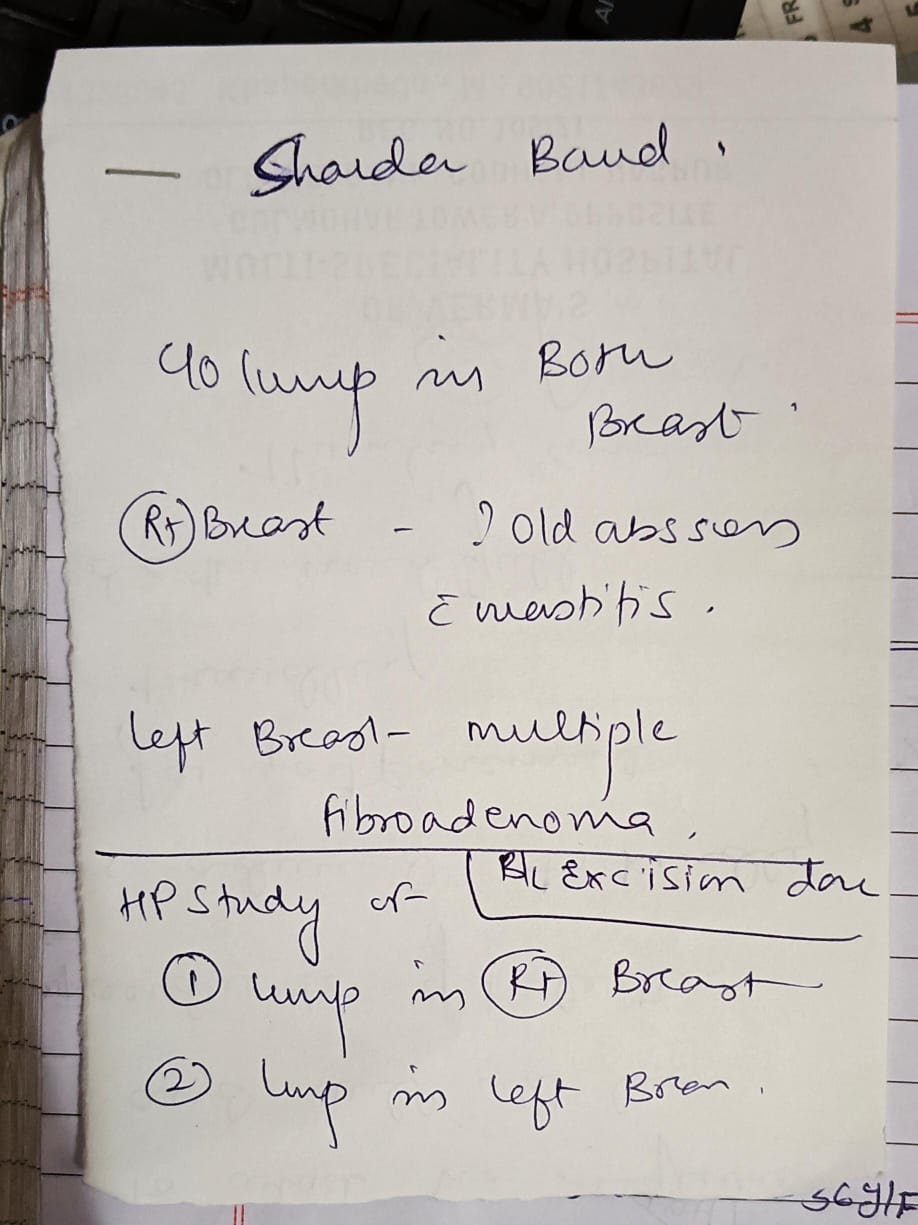 — Sharda Baud.
C/o lump in Both
Breast.
Rt Breast - ? Old abssess
c̄ mastitis.
left Breast - multiple
fibroadenoma.
B/L Excision done
HP Study of
① lump in Rt Breast
② lump in left Breas.
56y/F